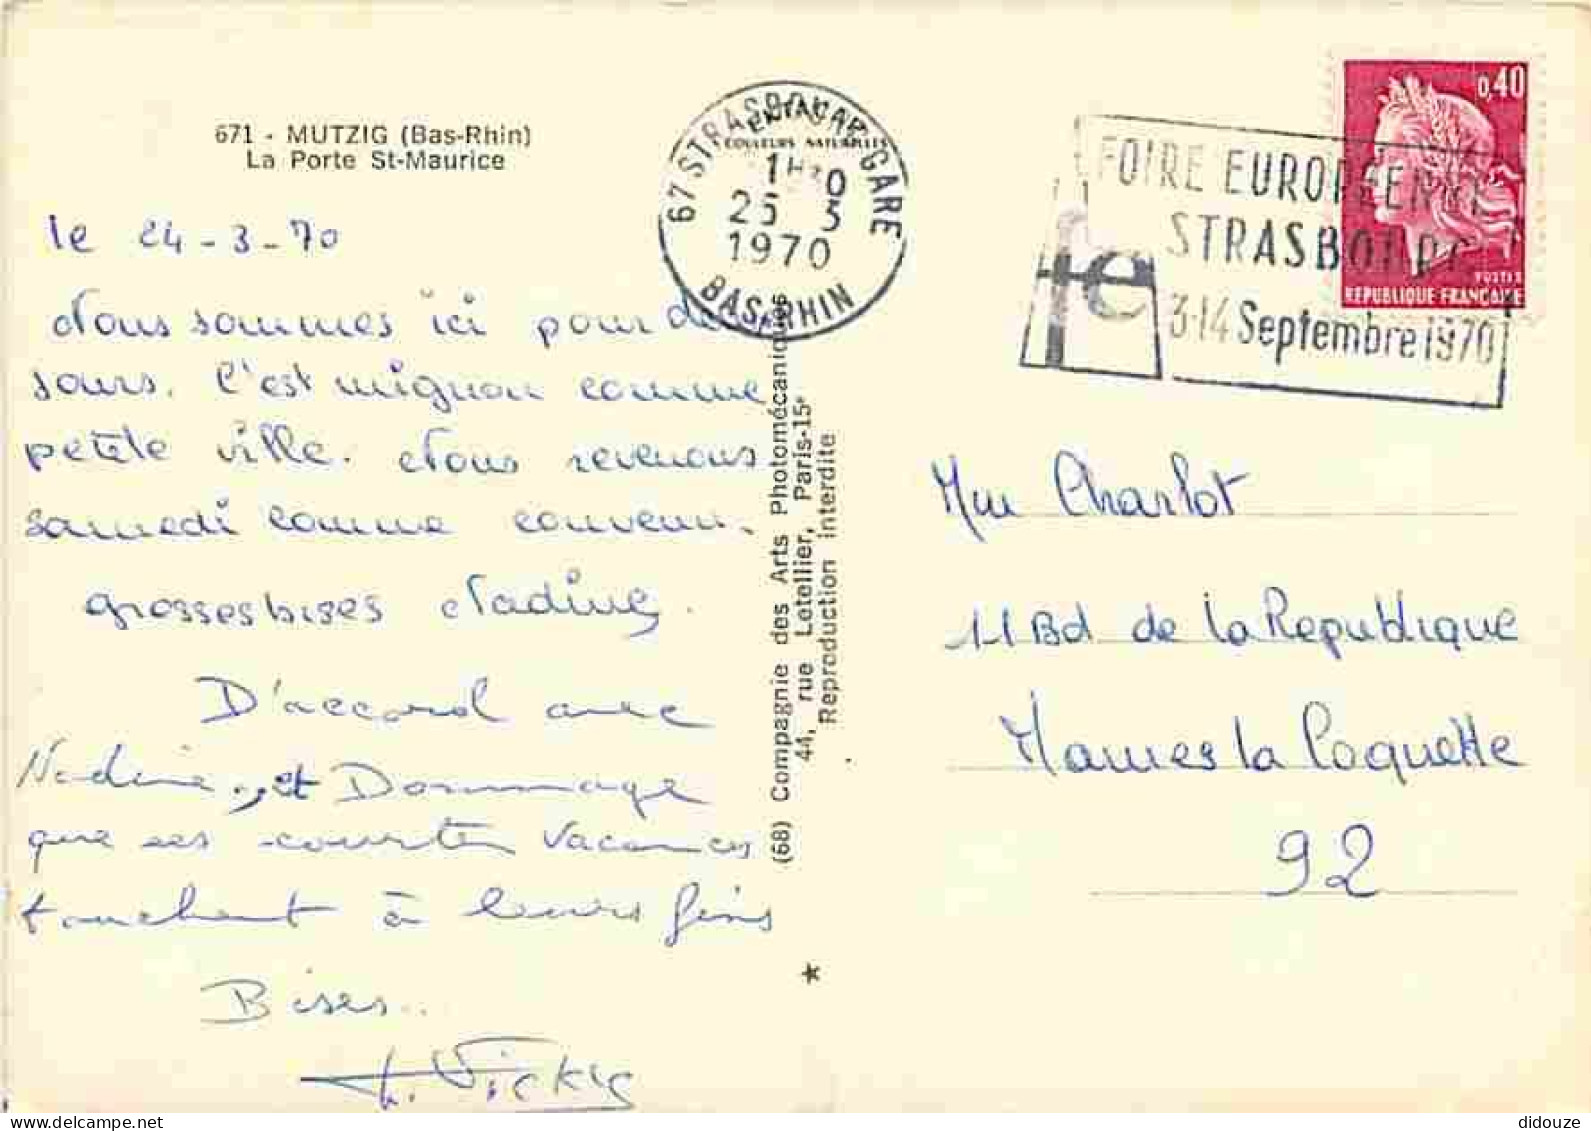 671 - MUTZIG (Bas-Rhin)
La Porte St-Maurice
le 24-3-70
Nous sommes ici pour deux
jours. C'est mignon comme
petite ville. Nous revenons
samedi comme convenu.
grosses bises Nadine.
D'accord avec
Nadine.., et Dommage
que ces courtes vacances
touchent à leurs fins
Bises..
Vicky
67 STRASBOURG GARE
COULEURS NATURELLES
25 - 3
1970
BAS-RHIN
(68) Compagnie des Arts Photomécaniques
44, rue Letellier, Paris-15e
Reproduction interdite
FOIRE EUROPEENNE
STRASBOURG
3-14 Septembre 1970
fe
0,40
POSTES
REPUBLIQUE FRANCAISE
Mme Charlot
11 Bd de la Republique
Marnes la Coquette
92
didouze